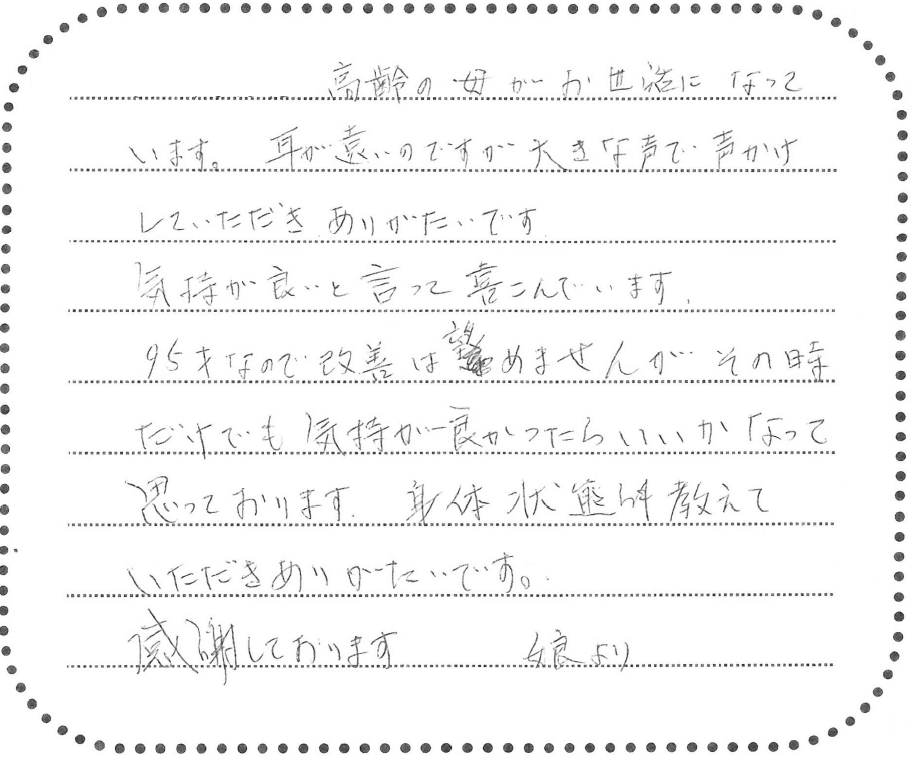 高齢の母がお世話になって
います。耳が遠いのですが大きな声で声かけ
していただきありがたいです
気持が良いと言って喜こんでいます。
95才なので改善は望めませんがその時
だけでも気持が良かったらいいかなって
思っております。身体状態 教えて
いただきありがたいです。
感謝しております 娘より